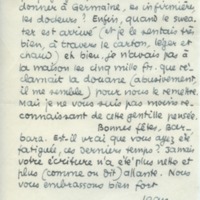 donner à Germaine, es infirmière,
les docteurs ! Enfin, quand le swea-
ter est arrivé (et je le sentais très
bien, à travers le carton, léger et
chaud) eh bien, je n'avais pas à
la maison les cinq mille frs. que ré-
clamait la douane (abusivement,
il me semble) pour nous le remettre.
Mais je ne vous suis pas moins re-
connaissant de cette gentille pensée.
Bonnes fêtes, Bar-
bara. Est-il vrai que vous ayez été
fatiguée, ces derniers temps ? Jamais
votre écriture n'a été plus nette et
plus (comme on dit) allante. Nous
vous embrassons bien fort